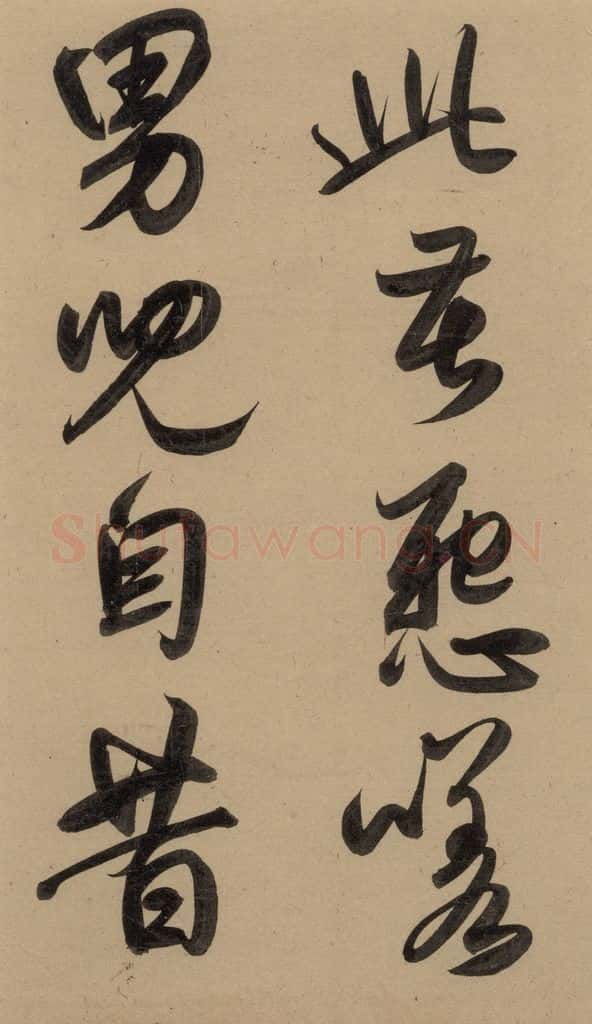 此嗟
男兒自昔
Shufawang.CN